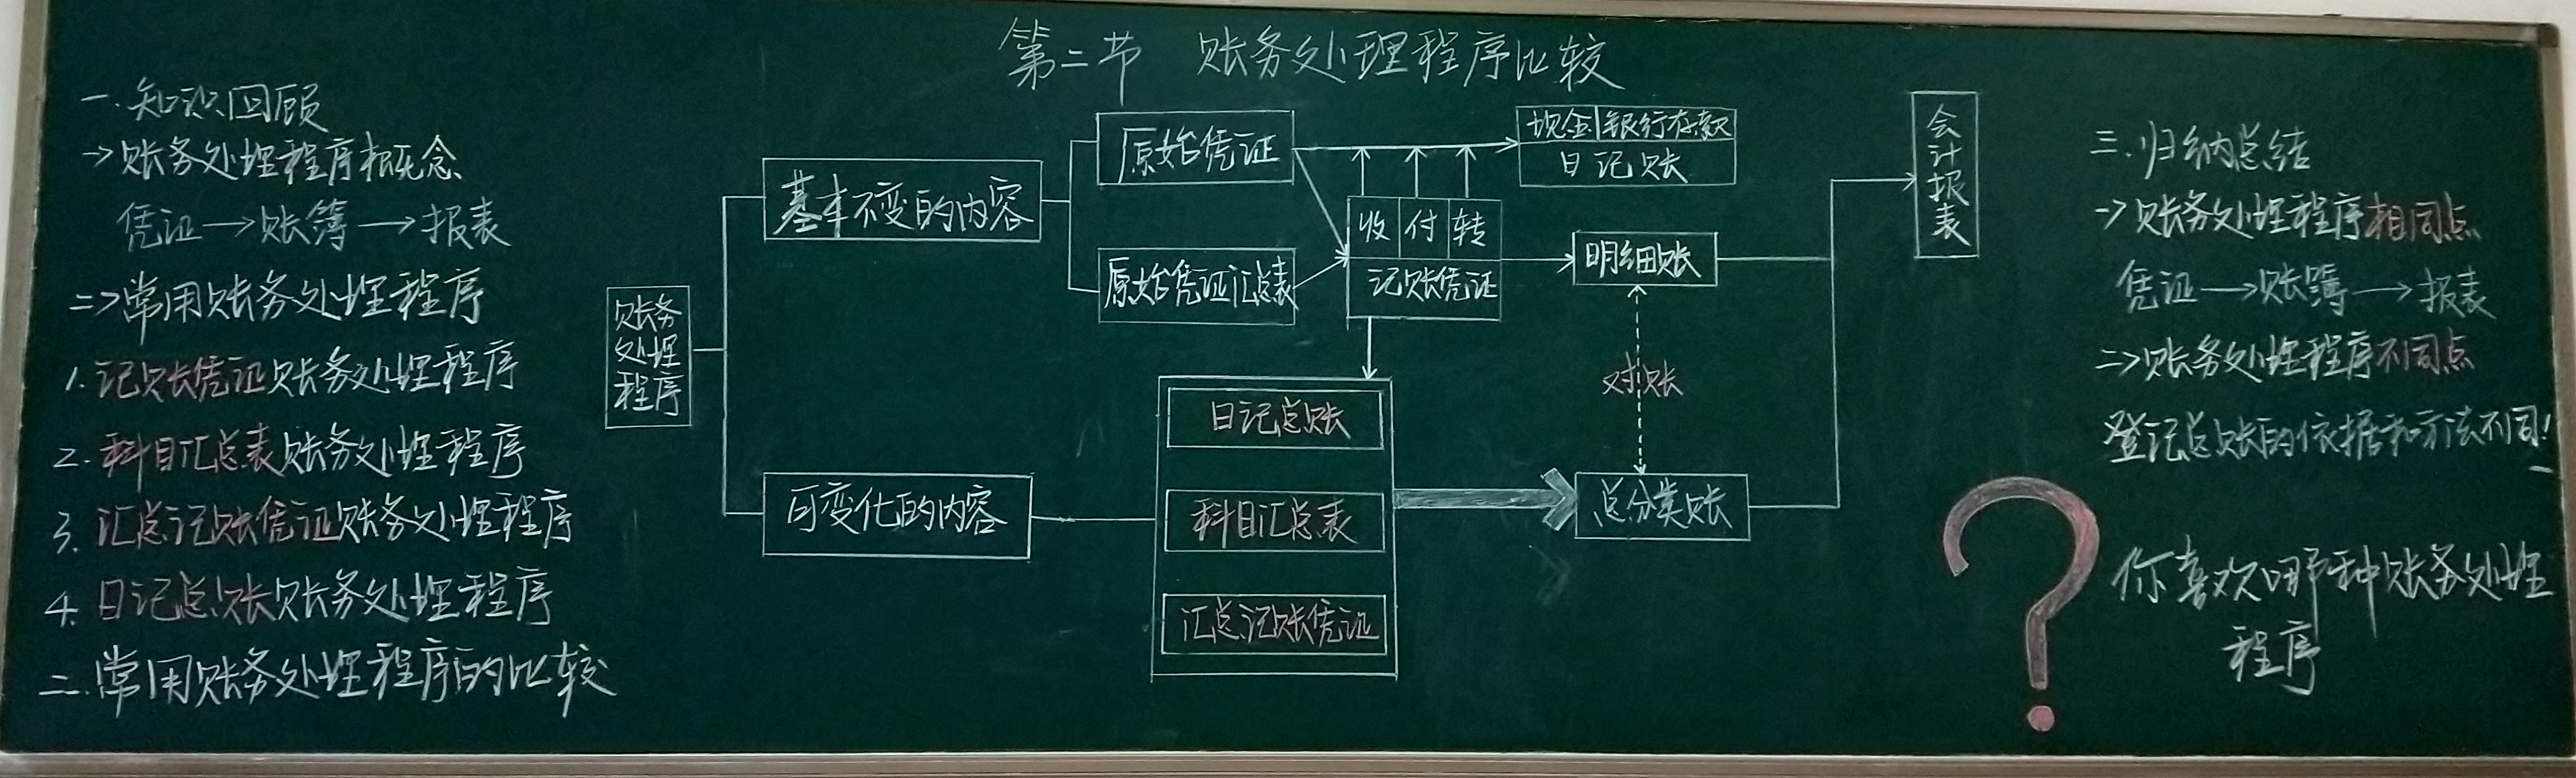 第二节 账务处理程序比较
一.知识回顾
→账务处理程序概念
凭证→账簿→报表
二→常用账务处理程序
1.记账凭证账务处理程序
2.科目汇总表账务处理程序
3.汇总记账凭证账务处理程序
4.日记总账账务处理程序
二.常用账务处理程序的比较
账务
处理
程序
基本不变的内容
可变化的内容
原始凭证
原始凭证汇总表
收 付 转
记账凭证
现金 银行存款
日记账
明细账
对账
日记总账
科目汇总表
汇总记账凭证
总分类账
会
计
报
表
三.归纳总结
→账务处理程序相同点
凭证→账簿→报表
二→账务处理程序不同点
登记总账的依据和方法不同!
?
你喜欢哪种账务处理
程序